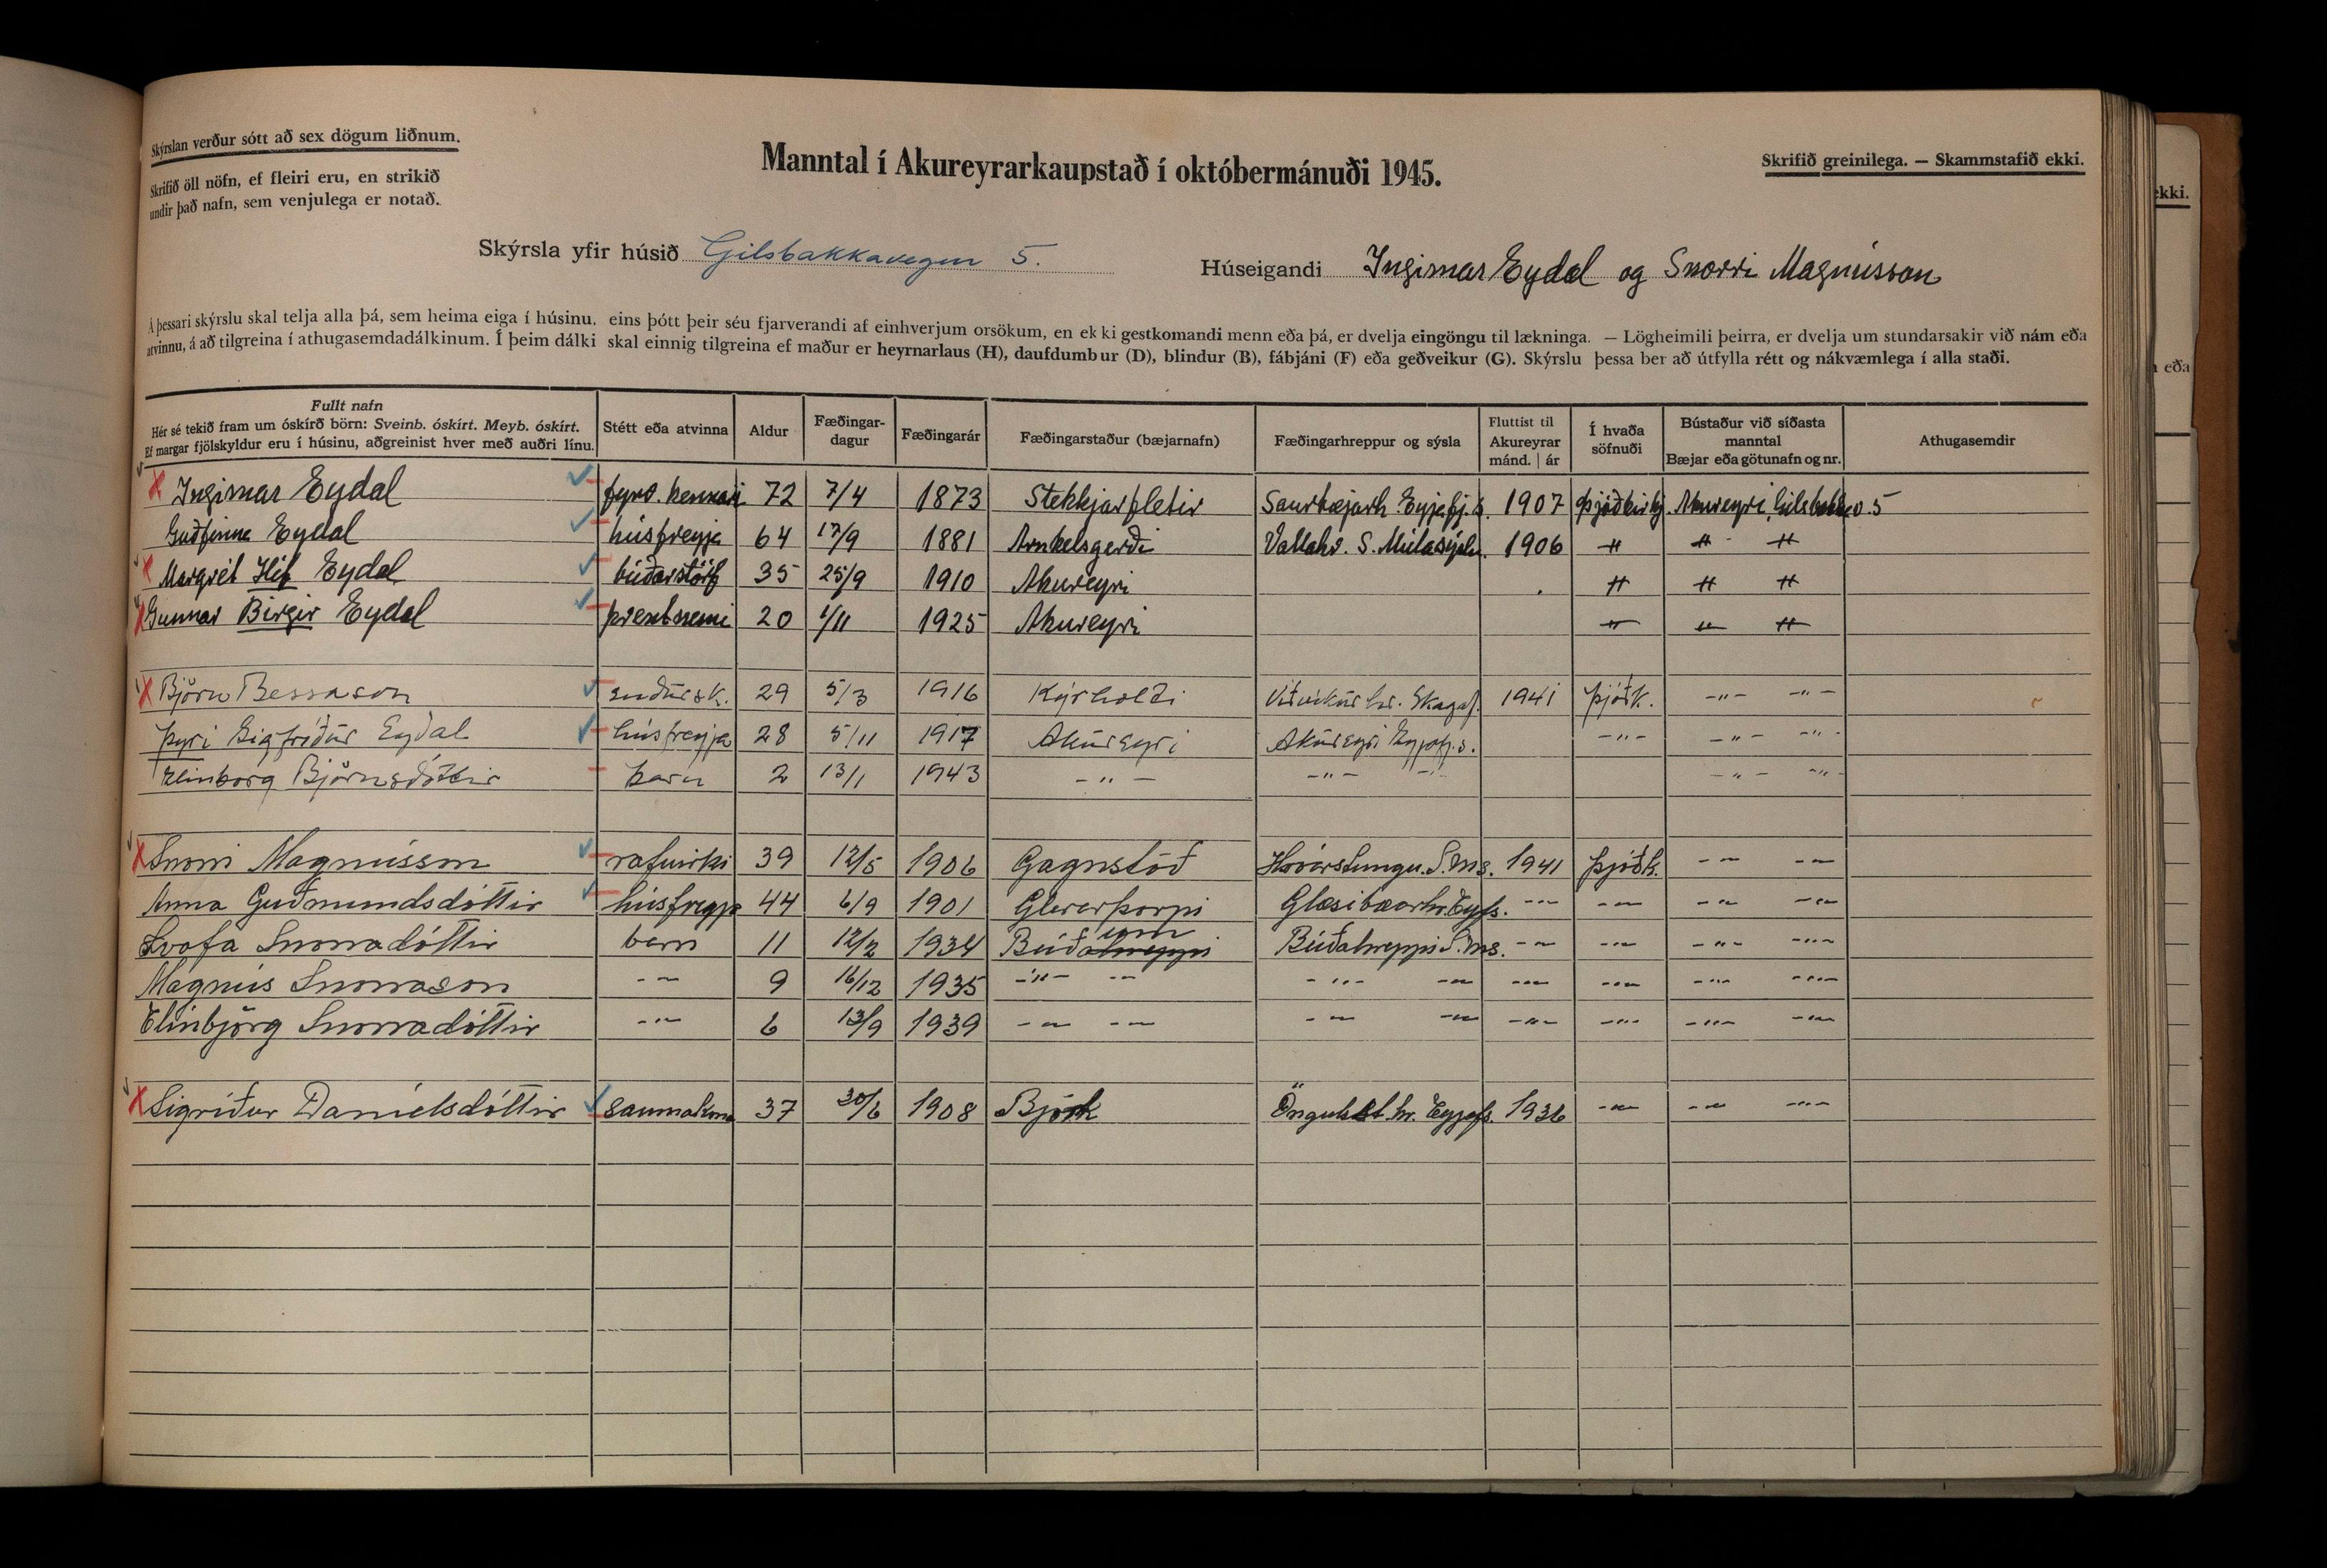 Skýrslan verður sótt að sex dögum liðnum.
Skrifið öll nöfn, ef fleiri eru, en strikið
undir það nafn, sem venjulega er notað.
Manntal í Akureyrarkaupstað í októbermánuði 1945.
Skrifið greinilega. — Skammstafið ekki.
Skýrsla yfir húsið Gilsbakkavegur 5.
Húseigandi Ingimar Eydal og Snorri Magnússon
Á þessari skýrslu skal telja alla þá, sem heima eiga í húsinu, eins þótt þeir séu fjarverandi af einhverjum orsökum, en ekki gestkomandi menn eða þá, er dvelja eingöngu til lækninga. — Lögheimili þeirra, er dvelja um stundarsakir við nám eða
atvinnu, á að tilgreina í athugasemdadálkinum. Í þeim dálki skal einnig tilgreina ef maður er heyrnarlaus (H), daufdumbur (D), blindur (B), fábjáni (F) eða geðveikur (G). Skýrslu þessa ber að útfylla rétt og nákvæmlega í alla staði.
Fullt nafn
Hér sé tekið fram um óskírð börn: Sveinb. óskírt. Meyb. óskírt.
Ef margar fjölskyldur eru í húsinu, aðgreinist hver með auðri línu.
Stétt eða atvinna
Aldur
Fæðingar-
dagur
Fæðingarár
Fæðingarstaður (bæjarnafn)
Fæðingarhreppur og sýsla
Fluttist til
Akureyrar
mánd. | ár
Í hvaða
söfnuði
Bústaður við síðasta
manntal
Bæjar eða götunafn og nr.
Athugasemdir
Ingimar Eydal fyrv. kennari 72 7/4 1873 Stekkjarfletir Saurbæjarh. Eyjafj.s. 1907 Þjóðkirkj. Akureyri, Gilsbakkav. 5
Guðfinna Eydal húsfreyja 64 17/9 1881 Arnkelsgerði Vallahr. S. Múlasýslu 1906 " " "
Margrét Hlíf Eydal búðarstörf 35 25/9 1910 Akureyri " " "
Gunnar Birgir Eydal prentnemi 20 1/11 1925 Akureyri " " "
Björn Bessason endursk. 29 5/3 1916 Kýrholti Viðvíkurhr. Skagaf. 1941 Þjóðk. -"- -"-
Þyri Sigfríður Eydal húsfreyja 28 5/11 1917 Akureyri Akureyri Eyjafj.s. -"- -"- -"-
Elinborg Björnsdóttir barn 2 13/1 1943 -"- -"- -"- -"- -"-
Snorri Magnússon rafvirki 39 12/5 1906 Gagnstöð Hróarstungu. S.Ms. 1941 Þjóðk. -"- -"-
Anna Guðmundsdóttir húsfreyja 44 6/9 1901 Glerárþorpi Glæsibæarhr. Eyfs. -"- -"- -"- -"-
Svafa Snorradóttir barn 11 12/2 1934 Búðahreppi Búðahreppi S.Ms. -"- -"- -"- -"-
Magnús Snorrason -"- 9 16/12 1935 -"- -"- -"- -"- -"- -"- -"- -"-
Elinbjörg Snorradóttir -"- 6 13/9 1939 -"- -"- -"- -"- -"- -"- -"- -"-
Sigríður Daníelsdóttir saumakona 37 30/6 1908 Björk Öngulsst.hr. Eyjafs. 1936 -"- -"- -"-